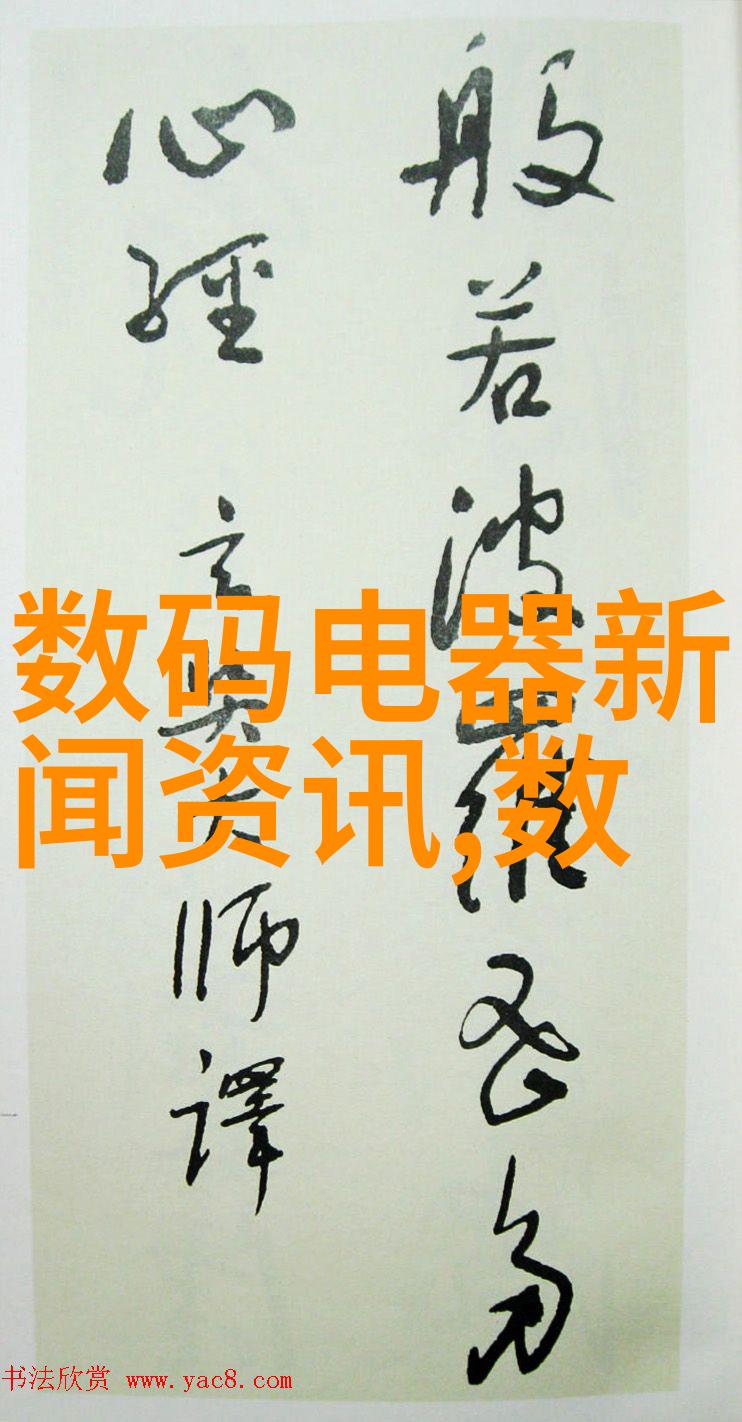 般若波羅密多
心經 玄奘大師譯
数码电器新
闻资讯,数
书法欣赏 www.yac8.com